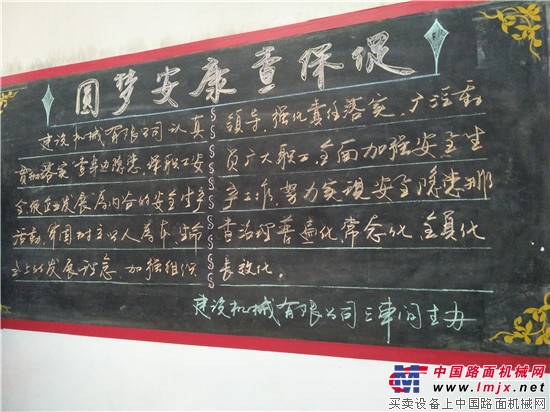 圆梦安康查保促
建设机械有限公司认真
贯彻落实查身边隐患、保职工安
全促企业发展为内容的安全生产
活动，牢固树立以人为本、生命
至上的发展理念，加强组织
领导，强化责任落实，广泛动
员广大职工，全面加强安全生
产工作，努力实现安全隐患排
查治理普遍化、常态化、全员化
长效化。
建设机械有限公司三车间主办
中国路面机械网
www.lmjx.net
买卖设备上中国路面机械网